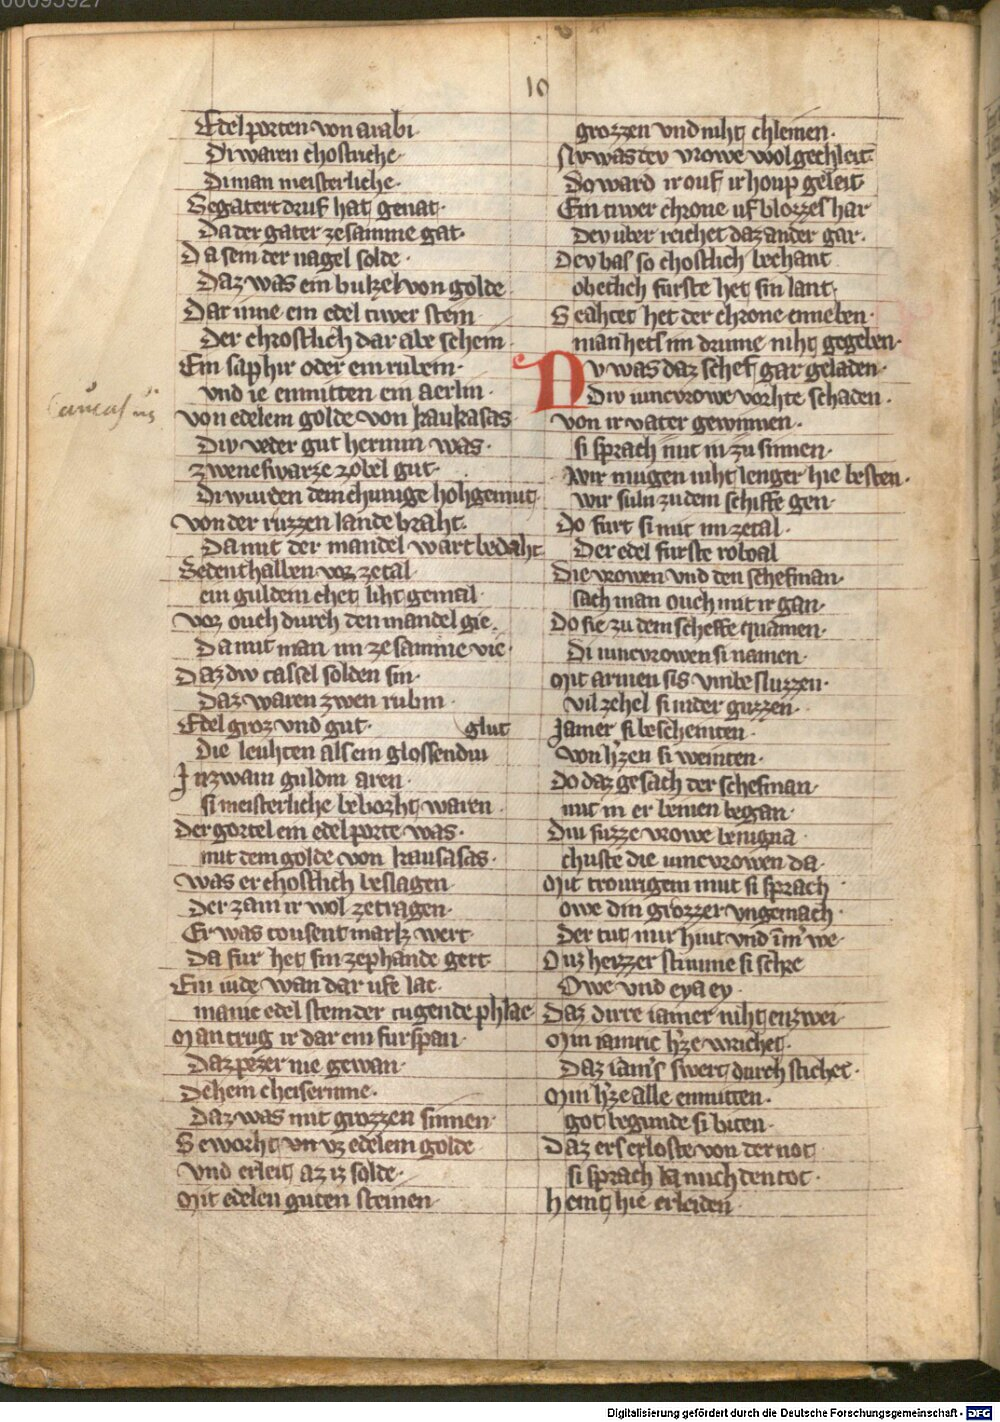 10
Edel porten von arabi
Di waren chostliche
Di man meisterliche
Gegatert druf hat genat
Da der gater zesamme gat
Da sein der nagel solde
Daz was ein bukzel von golde
Dar inne ein edel tiwer stein
Der chostlich dar abe schein
Ein saphir oder ein rubein
vnd ie enmitten ein aerlin
von edelem golde von kaukasas
Caucasus
Div veder gut hermin was
zwene swarze zobel gut
Di wurden dem chunige hohgemut
von der ruzzen lande braht
Da mit der mandel wart bedaht
Bedenthalben vor zetal
ein guldein chet liht gemal
vor ouch durch den mandel gie
Da mit man im zesamme vie
Daz div tassel solden sin
Daz waren zwen rubin
Edel groz vnd gut
glut
Die leuhten als ein glossendiu
In zwain guldin aren
si meisterliche bevorht waren
Der gortel ein edel porte was
mit dem golde von kausasas
was er chostlich beslagen
Der zam ir wol zetragen
Er was tousent mark wert
Da fur het sin ze phande gert
Ein iude wan dar ufe lac
manic edel stein der tugende phlac
Man trug ir dar ein furspan
Daz pezer nie gewan
Dehein cheiserinne
Daz was mit grozzen sinnen
Geworht vn vz edelem golde
vnd erleit az iz solde
Mit edelen guten steinen
grozzen vnd niht chleinen
Nv was dev vrowe wol gechleit
Do ward ir ouf ir houp geleit
Ein tiwer chrone uf blozzes har
Dev uber reichet daz ander gar
Dev was so chostlich bechant
obetlich furste het sin lant
Geahtet het der chrone enneben
man hets im drumme niht gegeben
Nv was daz schef gar geladen
Div iuncvrowe vorhte schaden
von ir vater gewinnen
si sprach mit in zu sinnen
Wir mugen niht lenger hie besten
wir suln zu dem schiffe gen
Do furt si mit im zetal
Der edel furste roboal
Die vrowen vnd den schefman
sach man ouch mit ir gan
Do sie zu dem scheffe quamen
Di iuncvrowen si namen
Mit armen sis vmbe sluzzen
vil zehel si nider guzzen
Jamer si bescheinten
Von h'zen si weinten
Do daz gesach der schefman
mit in er beinen began
Diu suzze vrowe benigna
chuste die iuncvrowen da
Mit trourigem mut si sprach
owe din grozzer vngemach
Der tut mir hiut vnd im' we
Vz heizzer stimme si schre
Owe vnd eya ey
Daz dirre iamer niht enzwei
Min iamric h'ze wrichet
Daz iam's swert durch stichet
Min h'ze alle enmitten
got begunde si biten
Daz ers erloste von der not
si sprach la mich den tot
Heint hie erleiden
Digitalisierung gefördert durch die Deutsche Forschungsgemeinschaft - DFG